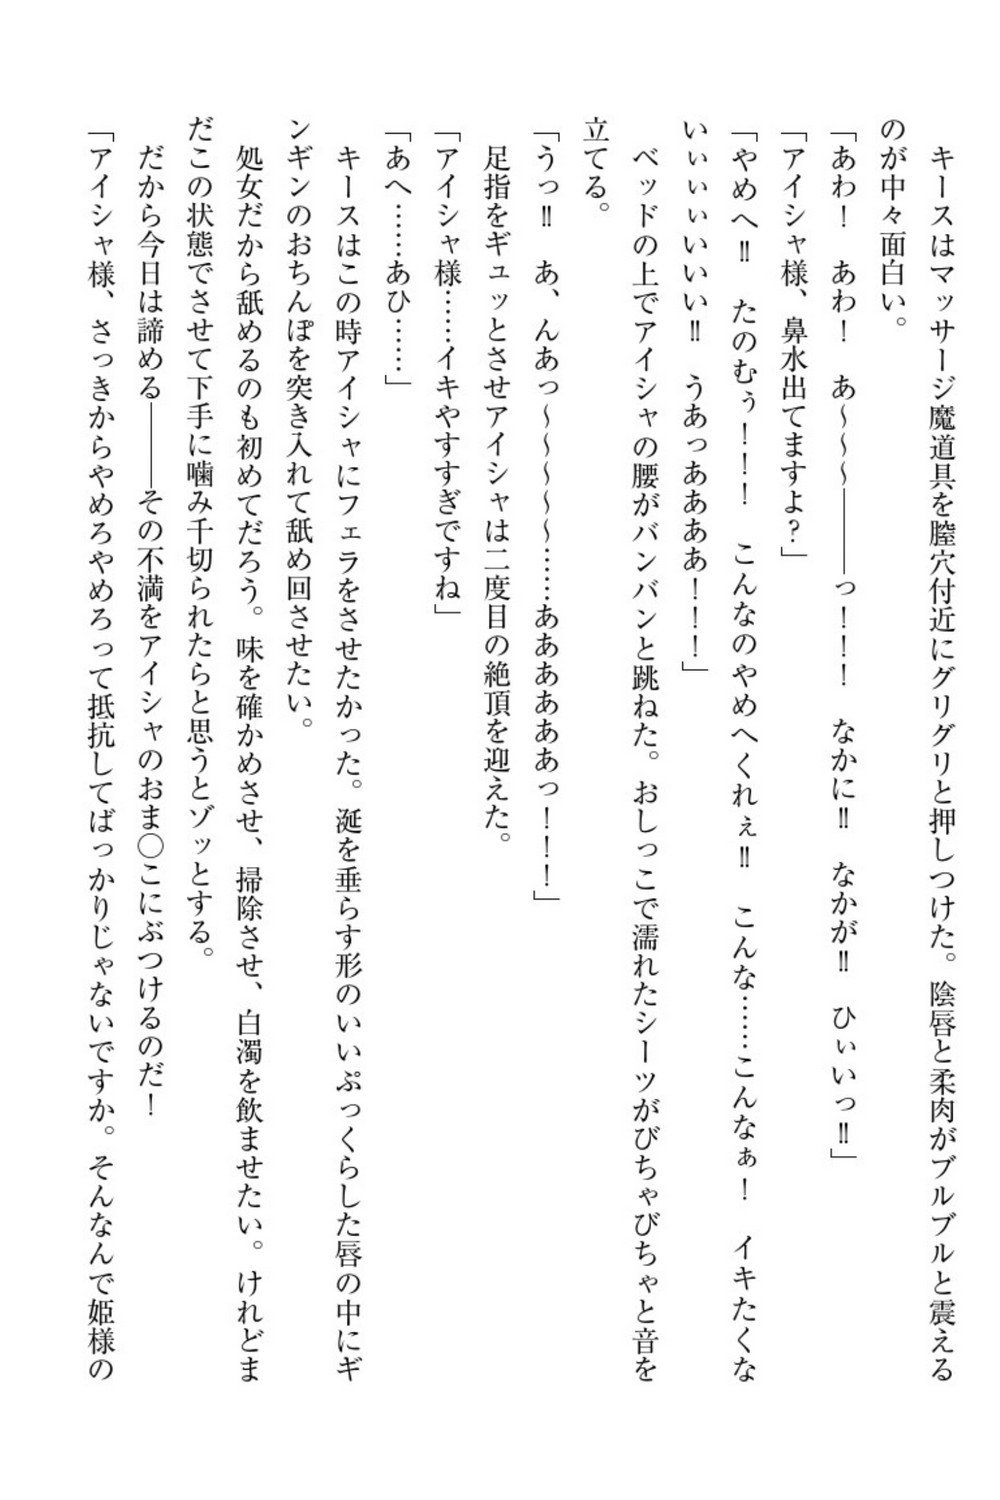 キースはマッサージ魔道具を膣穴付近にグリグリと押しつけた。陰唇と柔肉がブルブルと震える
のが中々面白い。
「あわ！　あわ！　あ～～～――――っ！！！　なかに‼　なかが‼　ひぃいっ‼」
「アイシャ様、鼻水出てますよ？」
「やめへ‼　たのむぅ！！！　こんなのやめへくれぇ‼　こんな……こんなぁ！　イキたくな
いぃぃぃいいい‼　うあっああああ！！！」
　ベッドの上でアイシャの腰がバンバンと跳ねた。おしっこで濡れたシーツがびちゃびちゃと音を
立てる。
「うっ‼　あ、んあっ～～～～～……ああああああっ！！！」
　足指をギュッとさせアイシャは二度目の絶頂を迎えた。
「アイシャ様……イキやすすぎですね」
「あへ……あひ……」
　キースはこの時アイシャにフェラをさせたかった。涎を垂らす形のいいぷっくらした唇の中にギ
ンギンのおちんぽを突き入れて舐め回させたい。
　処女だから舐めるのも初めてだろう。味を確かめさせ、掃除させ、白濁を飲ませたい。けれどま
だこの状態でさせて下手に噛み千切られたらと思うとゾッとする。
　だから今日は諦める――――その不満をアイシャのおま〇こにぶつけるのだ！
「アイシャ様、さっきからやめろやめろって抵抗してばっかりじゃないですか。そんなんで姫様の